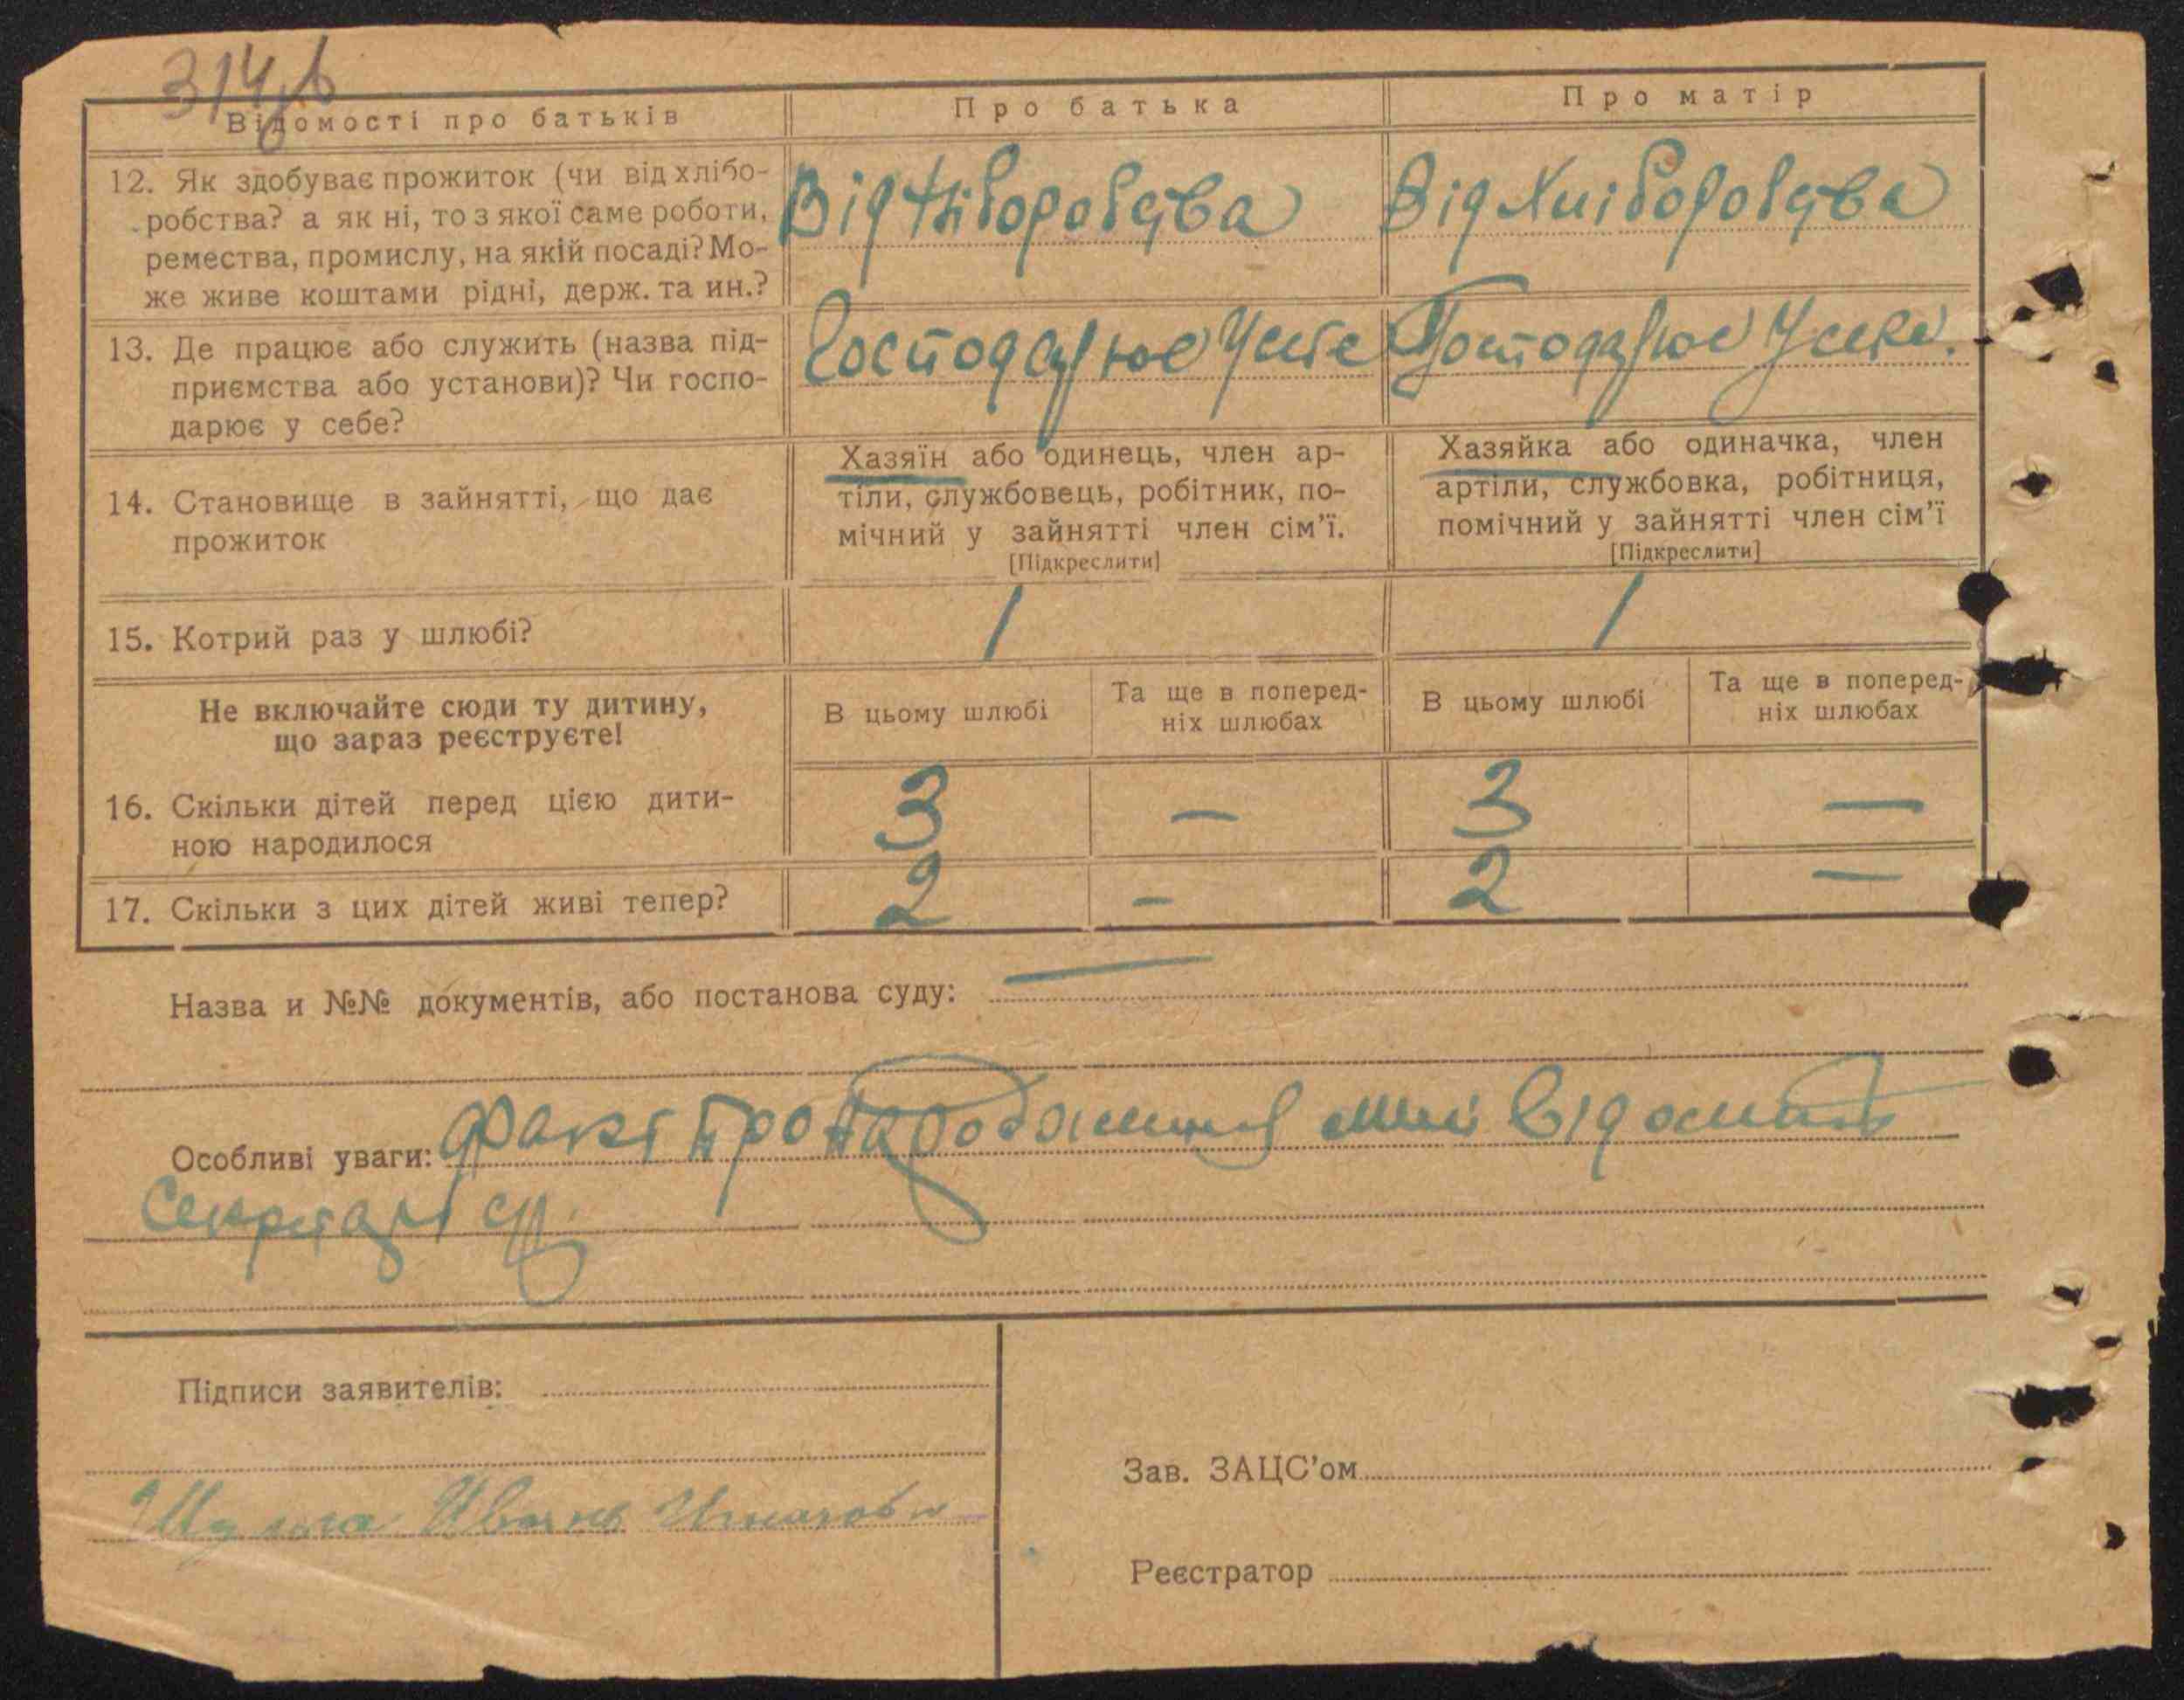 314
Відомості про батьків
Про батька
Про матір
12. Як здобуває прожиток (чи від хлібо-
робства? а як ні, то з якої саме роботи,
ремества, промислу, на якій посаді? Мо-
же живе коштами рідні, держ. та ин.?
Від Хліборобства
Від Хліборобства
13. Де працює або служить (назва під-
приємства або установи)? Чи госпо-
дарює у себе?
Господарює Усебе
Господарює Усебе.
14. Становище в зайнятті, що дає
прожиток
Хазяїн або одинець, член ар-
тіли, службовець, робітник, по-
мічний у зайнятті член сім'ї.
[Підкреслити]
Хазяйка або одиначка, член
артіли, службовка, робітниця,
помічний у зайнятті член сім'ї
[Підкреслити]
15. Котрий раз у шлюбі?
1
1
Не включайте сюди ту дитину,
що зараз реєструєте!
В цьому шлюбі
Та ще в поперед-
ніх шлюбах
В цьому шлюбі
Та ще в поперед-
ніх шлюбах
16. Скільки дітей перед цією дити-
ною народилося
3 — 3 —
17. Скільки з цих дітей живі тепер?
2 - 2 —
Назва и №№ документів, або постанова суду: —
Особливі уваги: Факт про Народження мні відомий
Секретар
Підписи заявителів:
Иванъ
Зав. ЗАЦС'ом
Реєстратор